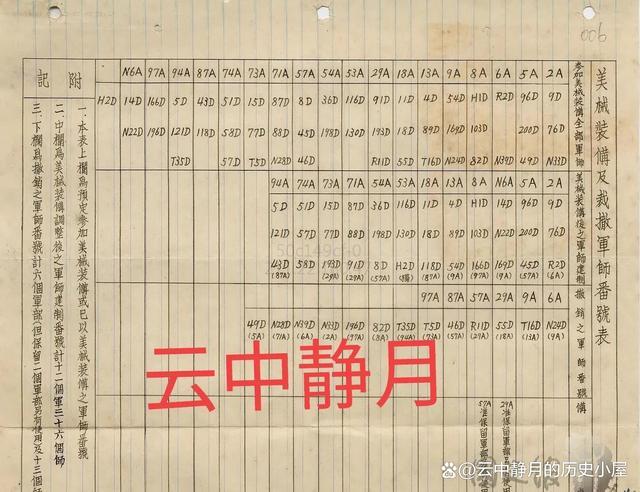 006
美械裝備及裁撤軍師番號表
參加美械裝備全部軍師
N6A 97A 94A 87A 74A 73A 71A 57A 54A 53A 29A 18A 13A 9A 8A 6A 5A 2A
H2D 14D 166D 5D 43D 51D 15D 87D 8D 36D 116D 91D 11D 4D 54D H1D R2D 96D 9D
N22D 196D 121D 118D 58D 77D 88D 45D 198D 130D 193D 18D 89D 169D 103D 200D 76D
T35D 57D T5D N28D 46D R11D 55D T16D N24D 82D N39D 49D N33D
美械裝備後之軍師建制
94A 74A 73A 71A 54A 53A 18A 13A 8A N6A 5A 2A
5D 51D 15D 87D 36D 116D 11D 4D H1D 14D 96D 9D
121D 57D 77D 88D 198D 130D 18D 89D 103D N22D 200D 76D
43D 58D 193D 91D 8D H2D 118D 54D 166D 169D 45D R2D
(87A) (29A) (29A) (57A) (87A) (9A) (97A) (9A) (57A) (6A)
撤銷之軍師番號
97A 87A 57A 29A 9A 6A
49D N28D N39D N33D 196D 82D T35D T5D 46D R11D 55D T16D N24D
(5A) (71A) (6A) (2A) (97A) (8A) (94A) (73A) (57A) (29A) (18A) (13A) (9A)
備
29A准保留軍部另有使用
57A准保留軍部
附記
一、本表上欄爲預定參加美械裝備或已以美械裝備之軍師番號
二、中欄爲美械裝備調整後之軍師建制番號計十二個軍三十六個師
三、下欄爲撤銷之軍師番號計六個軍部(但保留二個軍部另有使用)及十三個師
云中静月
@云中静月的历史小屋